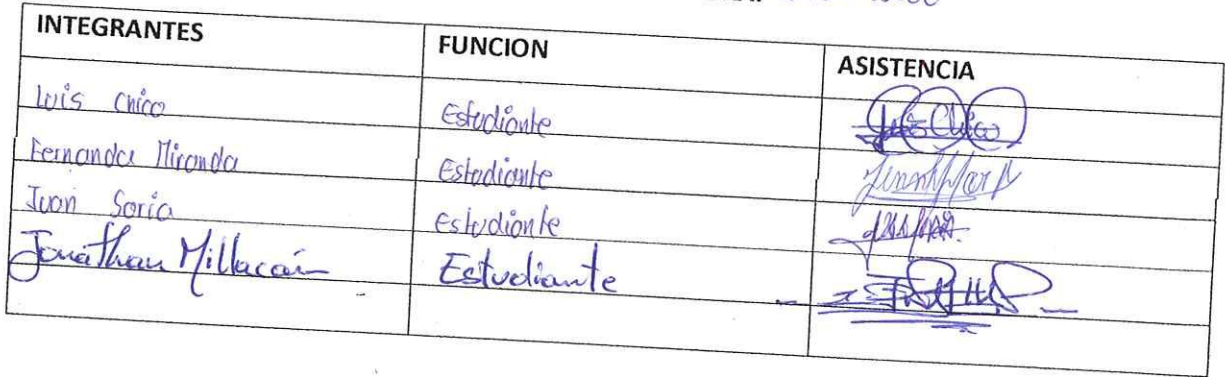 INTEGRANTES FUNCION ASISTENCIA
Luis Chico Estudiante Luis Chico
Fernanda Miranda Estudiante
Juan Soria estudiante
Jonathan Millacain Estudiante